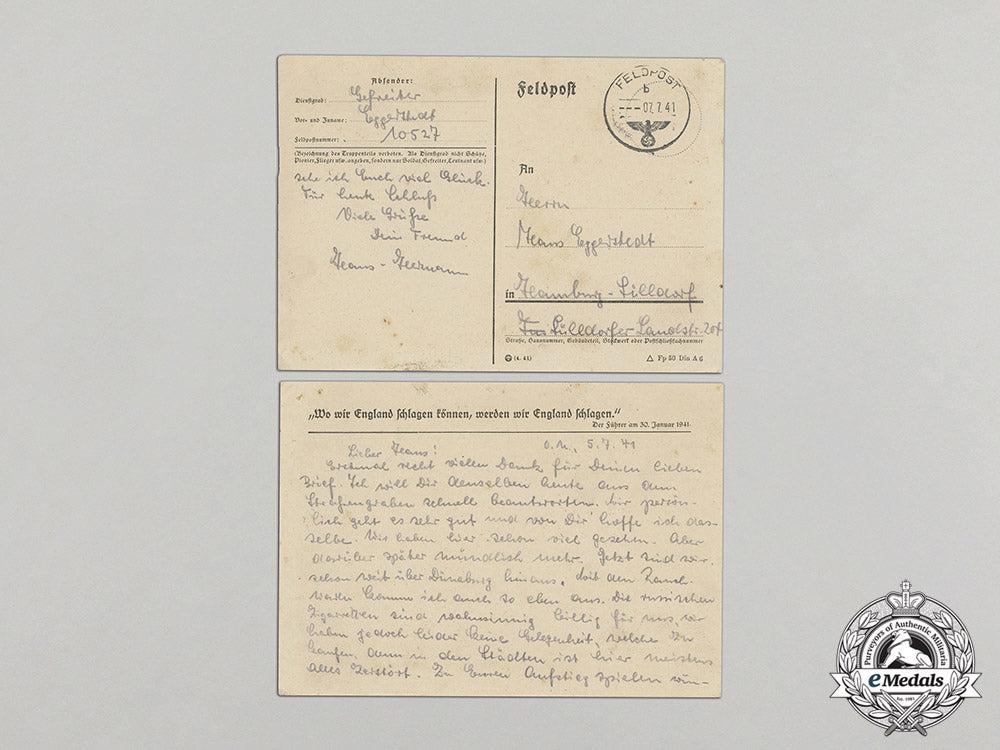 Absender:
Dienstgrad: Gefreiter
Vor- und Zuname: Eggerstedt
Feldpostnummer: 10527
(Bezeichnung des Truppenteils verboten. Als Dienstgrad nicht Schütze,
Pionier, Flieger usw. angeben, sondern nur Soldat, Gefreiter, Leutnant usw.)
sche ich Euch viel Glück.
Für heute Schluß
Viele Grüße
Dein Freund
Hans-Hermann
Feldpost
FELDPOST
b
07.7.41
An
Herrn
Hans Eggerstedt
in Hamburg-Sülldorf
Sülldorfer Landstr. 204
Straße, Hausnummer, Gebäudeteil, Stockwerk oder Postschließfachnummer
(4. 41)
Fp 50 Din A 6
„Wo wir England schlagen können, werden wir England schlagen.“
Der Führer am 30. Januar 1941
O.U., 5.7.41
Lieber Hans!
Erstmal recht vielen Dank für Deinen lieben
Brief. Ich will Dir denselben heute aus dem
Straßengraben schnell beantworten. Mir persön-
lich geht es sehr gut und von Dir hoffe ich das-
selbe. Wir haben hier schon viel gesehen. Aber
darüber später mündlich mehr. Jetzt sind wir
schon weit über Dünaburg hinaus. Mit den Rauch-
waren komme ich auch so eben aus. Die russischen
Zigaretten sind wahnsinnig billig für uns, wir
haben jedoch leider keine Gelegenheit, welche zu
kaufen, denn in den Städten ist hier meistens
alles zerstört. Zu Euren Aufstieg spielen wün-
Purveyors of Authentic Militaria
eMedals
Est. 1985